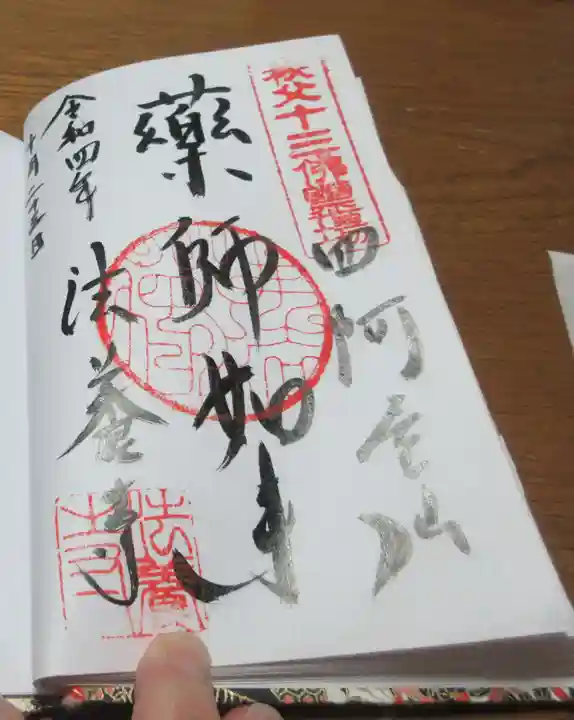 秩父十三佛霊場
四阿屋山
藥師如来
法養寺
令和四年
十月二十五日
法養寺